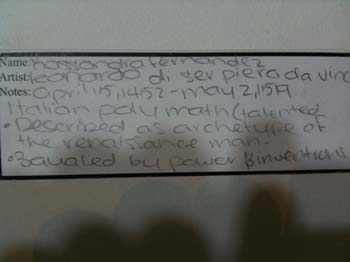 Name: Kassandra Fernandez
Artist: leonardo di ser piero da vinc
Notes: April 15, 1452 - may 2, 1519
Italian poly math (talented
• Described as archetype of
the renaissance man.
by power & inventions